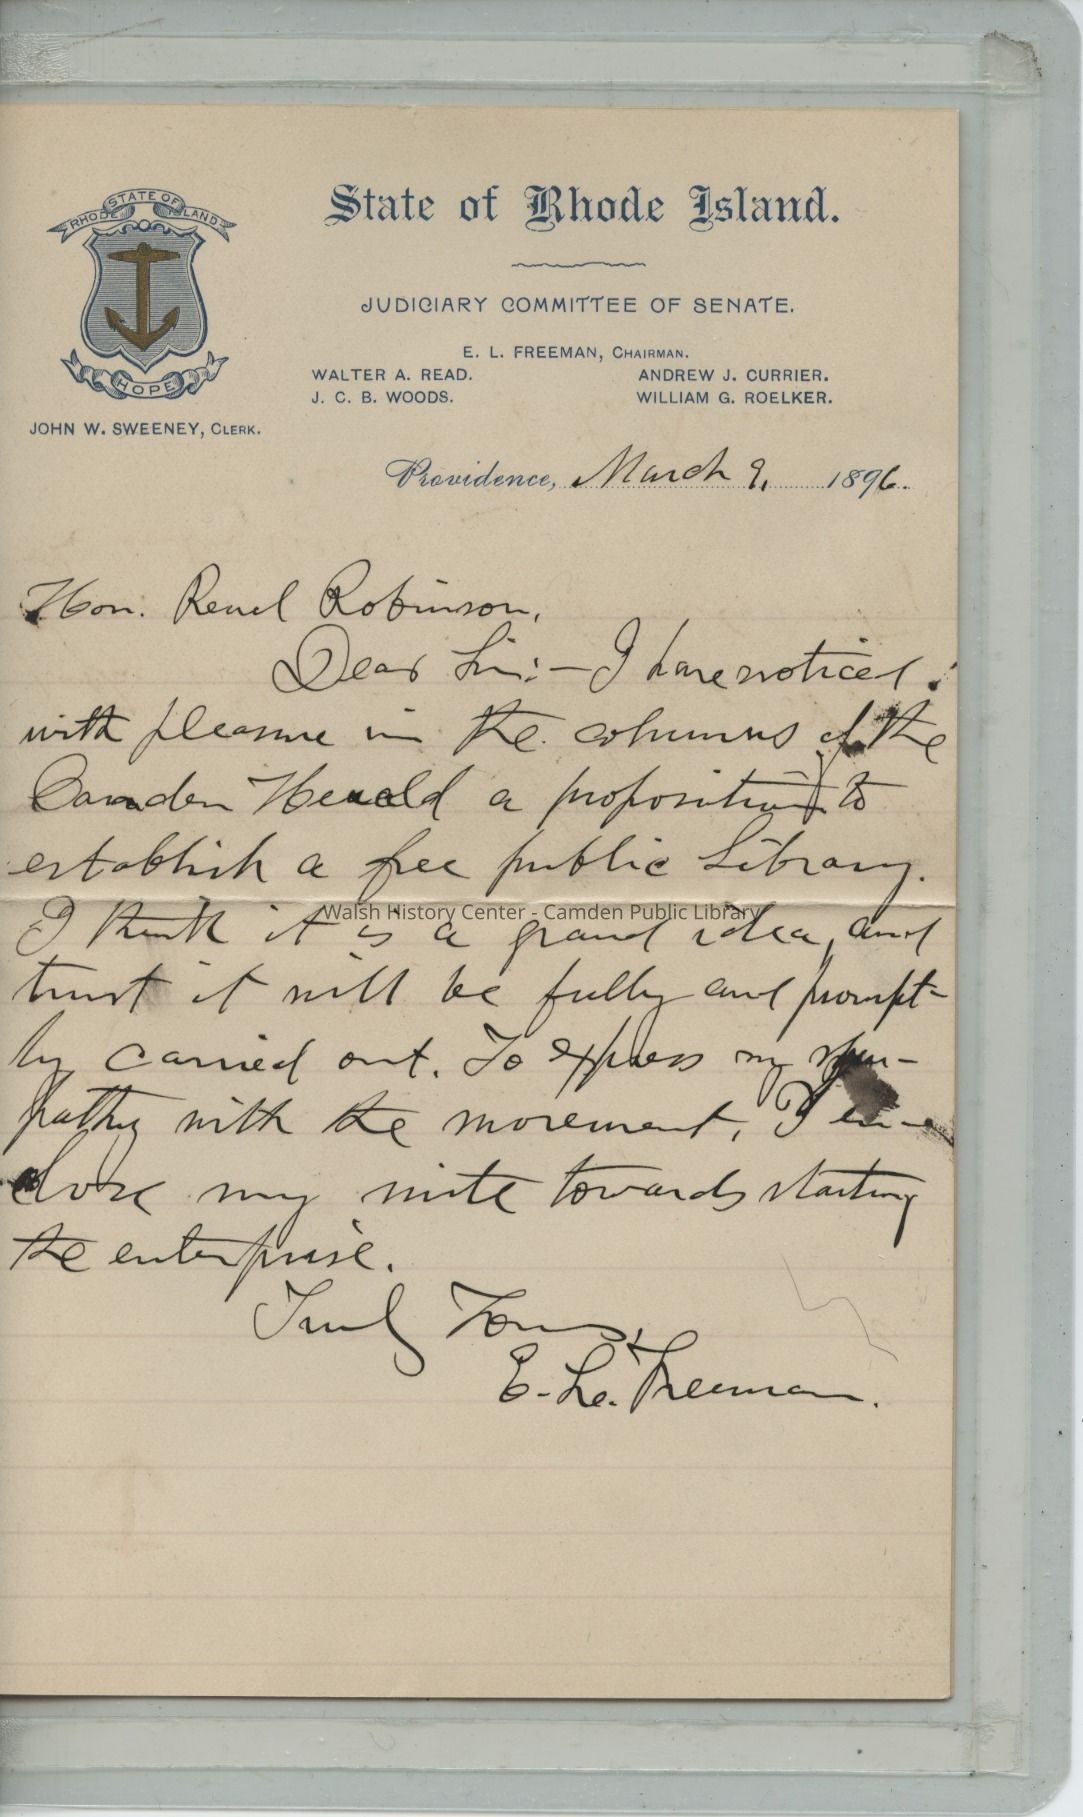 STATE OF
RHODE ISLAND
HOPE
JOHN W. SWEENEY, CLERK.
State of Rhode Island.
JUDICIARY COMMITTEE OF SENATE.
E. L. FREEMAN, CHAIRMAN.
WALTER A. READ. ANDREW J. CURRIER.
J. C. B. WOODS. WILLIAM G. ROELKER.
Providence, March 9, 1896.
Hon. Reuel Robinson,
Dear Sir:— I have noticed
with pleasure in the columns of the
Camden Herald a proposition to
establish a free public Library.
Walsh History Center - Camden Public Library
I think it is a grand idea, and
trust it will be fully and prompt-
ly carried out. To express my sym-
pathy with the movement, I en-
close my mite towards starting
the enterprise.
Truly Yours,
E. L. Freeman.